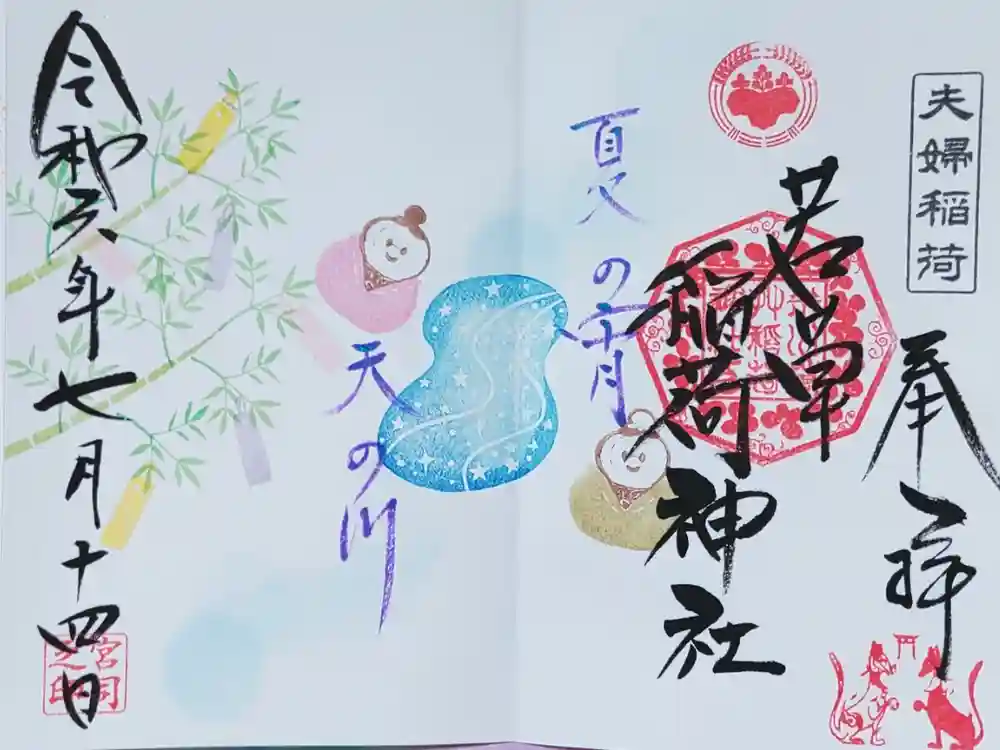 夫婦稲荷
奉拝
稲荷神社
夏の
天の川
令和六年七月十四日
宮司之印